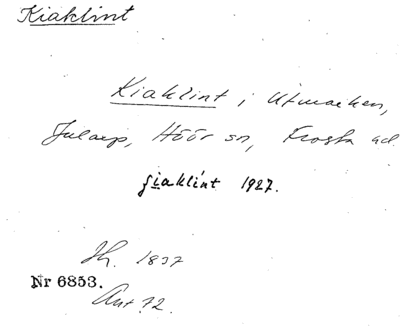 Kiaklint
Kiaklint i Utmarken,
Jularp, Höör sn, Frosta hd.
fiaklint 1927.
Jh. 1837
Nr 6853.
Ant 72.